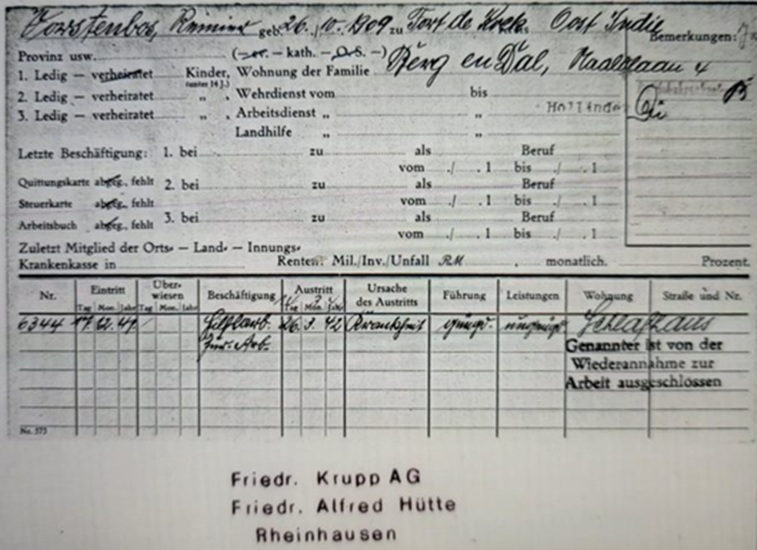 Vorstenbos, Reinier geb. 26./10. 1909 zu Fort de Kock Oost Indie Bemerkungen:
Provinz usw. (–ev. – kath. – O.S. –) Berg en Dal, 4
1. Ledig – verheiratet Kinder, (unter 14 J.) Wohnung der Familie
2. Ledig – verheiratet „ „ Wehrdienst vom bis
3. Ledig – verheiratet „ „ Arbeitsdienst „ „ Holländer
Landhilfe „ „
Letzte Beschäftigung: 1. bei zu als Beruf
vom ./ .1 bis ./ .1
Quittungskarte abgeg., fehlt 2. bei zu als Beruf
Steuerkarte abgeg., fehlt vom ./ .1 bis ./ .1
Arbeitsbuch abgeg., fehlt 3. bei zu als Beruf
vom ./ .1 bis ./ .1
Zuletzt Mitglied der Orts- – Land- – Innungs-
Krankenkasse in Renten: Mil./Inv./Unfall RM , monatlich. Prozent.
Nr. Eintritt Über-wiesen Beschäftigung Austritt Ursache des Austritts Führung Leistungen Wohnung Straße und Nr.
Tag Mon. Jahr Tag Mon. Jahr Tag Mon. Jahr
6344 17. 12. 41 Hilfsarb. 26. 3. 42 Krankheit genügd. ungenügd. Schlafhaus
Genannter ist von der
Wiederannahme zur
Arbeit ausgeschlossen
No. 573
Friedr. Krupp AG
Friedr. Alfred Hütte
Rheinhausen